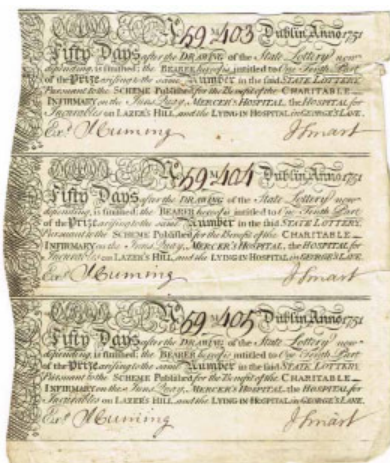 No. 59M403 Dublin Anno 1751
Fifty Days after the DRAWING of the State Lottery now
depending, is finished; the BEARER hereof is intitled to One Tenth Part
of the Prize arising to the same Number in the said STATE LOTTERY.
Pursuant to the SCHEME Published for the Benefit of the CHARITABLE
INFIRMARY on the Inns Quay, MERCER'S HOSPITAL, the HOSPITAL for
Incurables on LAZER'S HILL, and the LYING IN HOSPITAL in GEORGE'S LANE.
JSmart
No. 59M404 Dublin Anno 1751
Fifty Days after the DRAWING of the State Lottery now
depending, is finished; the BEARER hereof is intitled to One Tenth Part
of the Prize arising to the same Number in the said STATE LOTTERY.
Pursuant to the SCHEME Published for the Benefit of the CHARITABLE
INFIRMARY on the Inns Quay, MERCER'S HOSPITAL, the HOSPITAL for
Incurables on LAZER'S HILL, and the LYING IN HOSPITAL in GEORGE'S LANE.
JSmart
No. 59M405 Dublin Anno 1751
Fifty Days after the DRAWING of the State Lottery now
depending, is finished; the BEARER hereof is intitled to One Tenth Part
of the Prize arising to the same Number in the said STATE LOTTERY.
Pursuant to the SCHEME Published for the Benefit of the CHARITABLE
INFIRMARY on the Inns Quay, MERCER'S HOSPITAL, the HOSPITAL for
Incurables on LAZER'S HILL, and the LYING IN HOSPITAL in GEORGE'S LANE.
JSmart